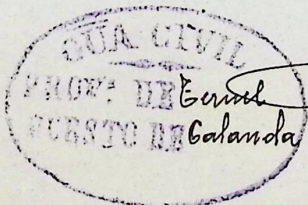 GUA. CIVIL
PROVᴬ DE Teruel
PUESTO DE Calanda